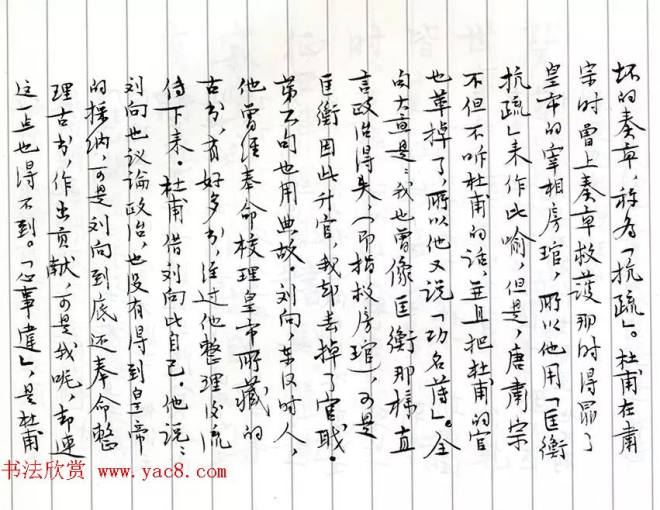 坏的奏章，称为「抗疏」。杜甫在肃
宗时曾上奏章救护那时得罪了
皇帝的宰相房琯，所以他用「匡衡
抗疏」来作比喻，但是，唐肃宗
不但不听杜甫的话，并且把杜甫的官
也革掉了，所以他又说「功名薄」。全
句大意是：我也曾像匡衡那样直
言政治得失（即指救房琯），可是
匡衡因此升官，我却丢掉了官职。
第六句也用典故。刘向，东汉时人，
他曾经奉命校理皇帝所藏的
古书，有好多书，经过他整理后流
传下来。杜甫借刘向比自己。他说：
刘向也议论政治，也没有得到皇帝
的採纳，可是刘向到底还奉命整
理古书，作出贡献，可是我呢，却连
这一点也得不到。「心事违」，是杜甫
书法欣赏 www.yac8.com